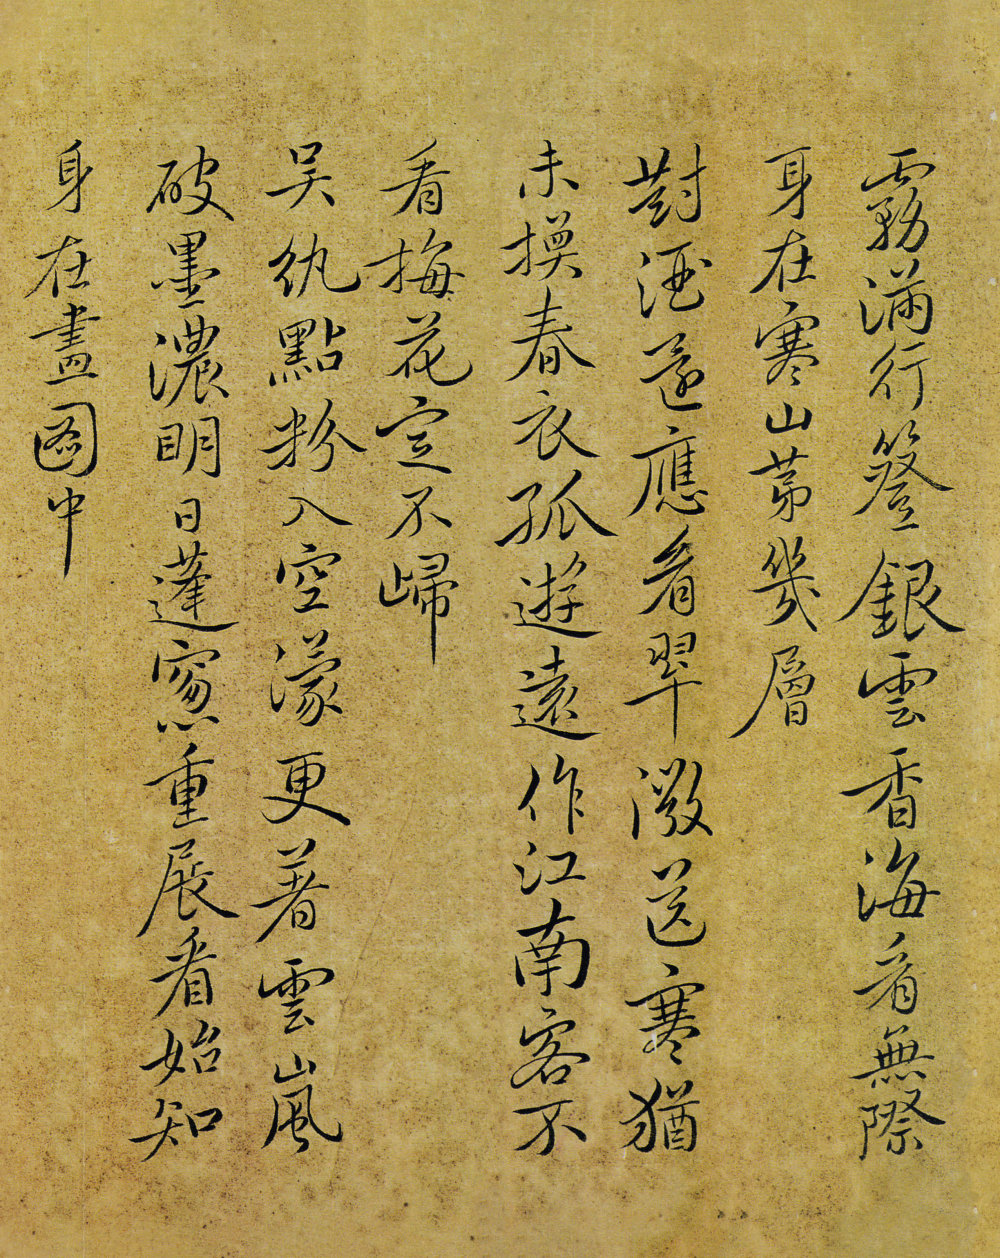 霧滿行簦銀雲香海看無際
身在寒山第幾層
對酒還應看翠微送寒猶
未換春衣孤遊遠作江南客不
看梅花定不歸
吳紈點粉入空濛更著雲嵐
破墨濃明日蓬窻重展看始知
身在畫圖中